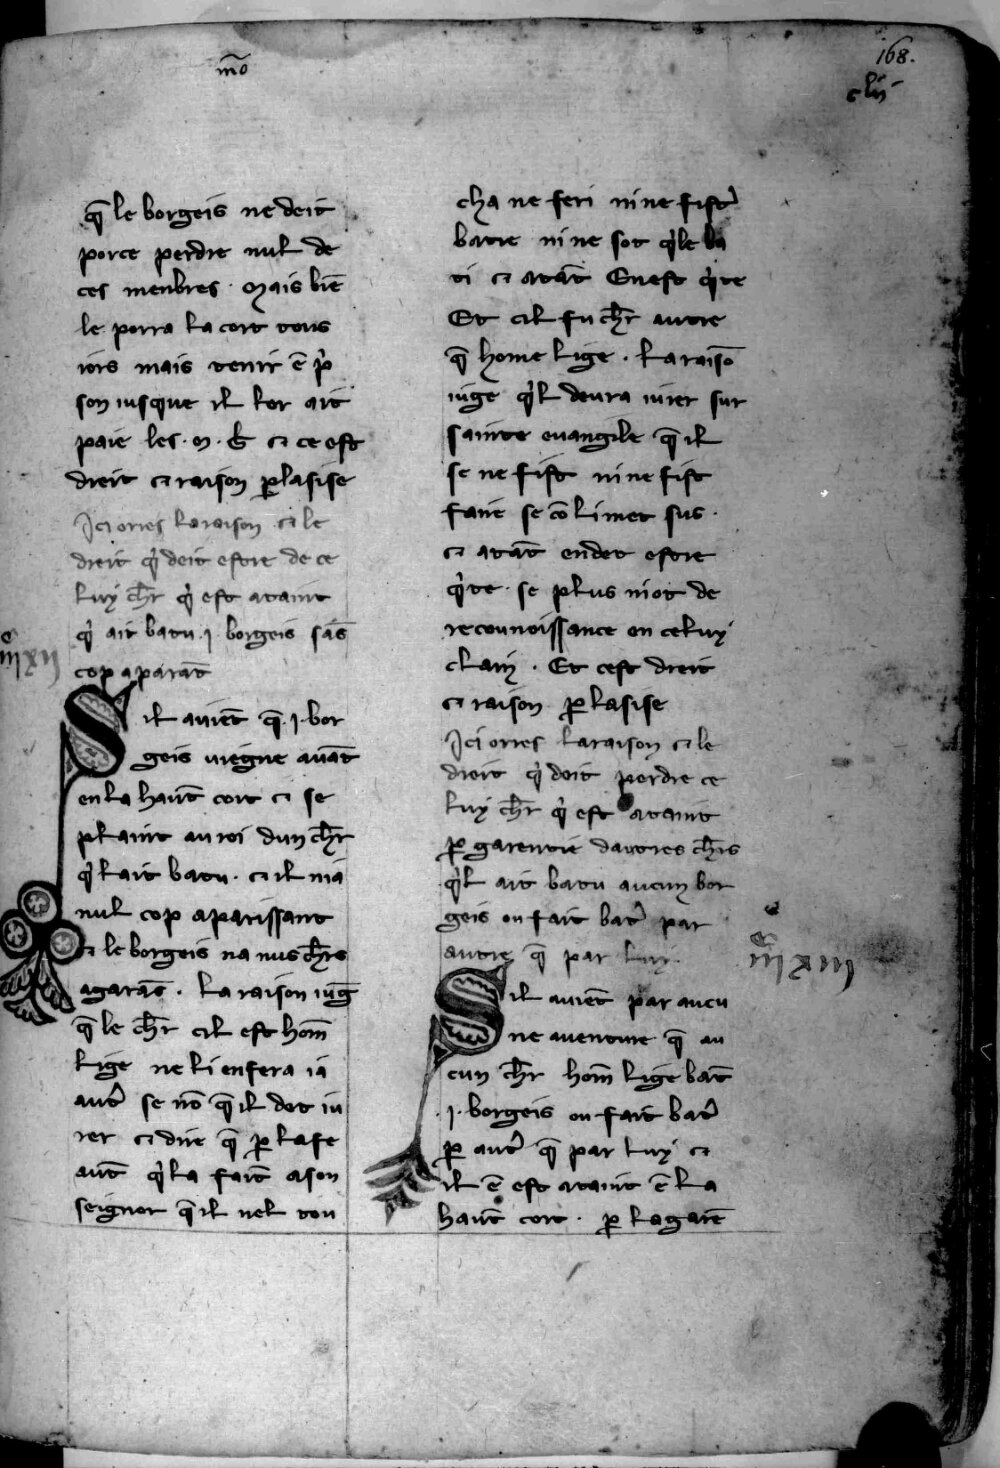 mo᷃
168.
clii
q̄ le borgeis ne deit
porce perdre nul de
ces menbres · Mais biē
le porra la cort tous
iors mais tenir ē pͥ
son iusque il lor ait
paie les · m · b̶ ⁊ ce est
dreit ⁊ raison ꝑ lasise
Ici orres la raison ⁊ le
dreit qͥ deit estre de ce
luy ch̄r qͥ est ataint
qͥ ait batu · i · borgeis sās
cop aparāt
Sil auiēt q̄ · i · bor
geis viegne auāt
en la haut̄ cort ⁊ se
plaint au roi dun ch̄r
qͥ lait batu · ⁊ il nia
nul cop aparissant
⁊ le borgeis na nus ch̄rs
a garās · La raison iuḡ
q̄ le ch̄r cil est hom̄
lige ne li en fera ia
aut̄ se nō q̄ il det iu
rer ⁊ dire q̄ ꝑ la fe
aut̄ qͥ la fait̄ a son
seignor q̄ il nel tou
cha ne feri ni ne fist
batre ni ne sot qͥ le ba
ti ⁊ atāt en est qͥte
Et cil fu ch̄r autre
q̄ home lige · La raisō
iuge qͥl deura iurer sur
sainte euangile q̄ il
se ne fist ni ne fist
faire se cō li met sus ·
⁊ atāt en det estre
qͥte · se plus ni ot de
recounoissance en celuy
claim · Et cest dreit
⁊ raison ꝑ lasise
Ici orres la raison ⁊ le
dreit qͥ doit perdre ce
luy ch̄r qͥ est ataint
ꝑ garentie dautres ch̄rs
qͥl ait batu aucun bor
geis ou fait bat̄ par
autre q̄ par luy ·
Sil auiēt par aucu
ne auenture q̄ au
cun ch̄r hom̄ lige bat̄
· i · borgeis ou fait bat̄
ꝑ aut̄ q̄ par luy ⁊
il ē est ataint ē la
haut̄ cort · ꝑ la garē